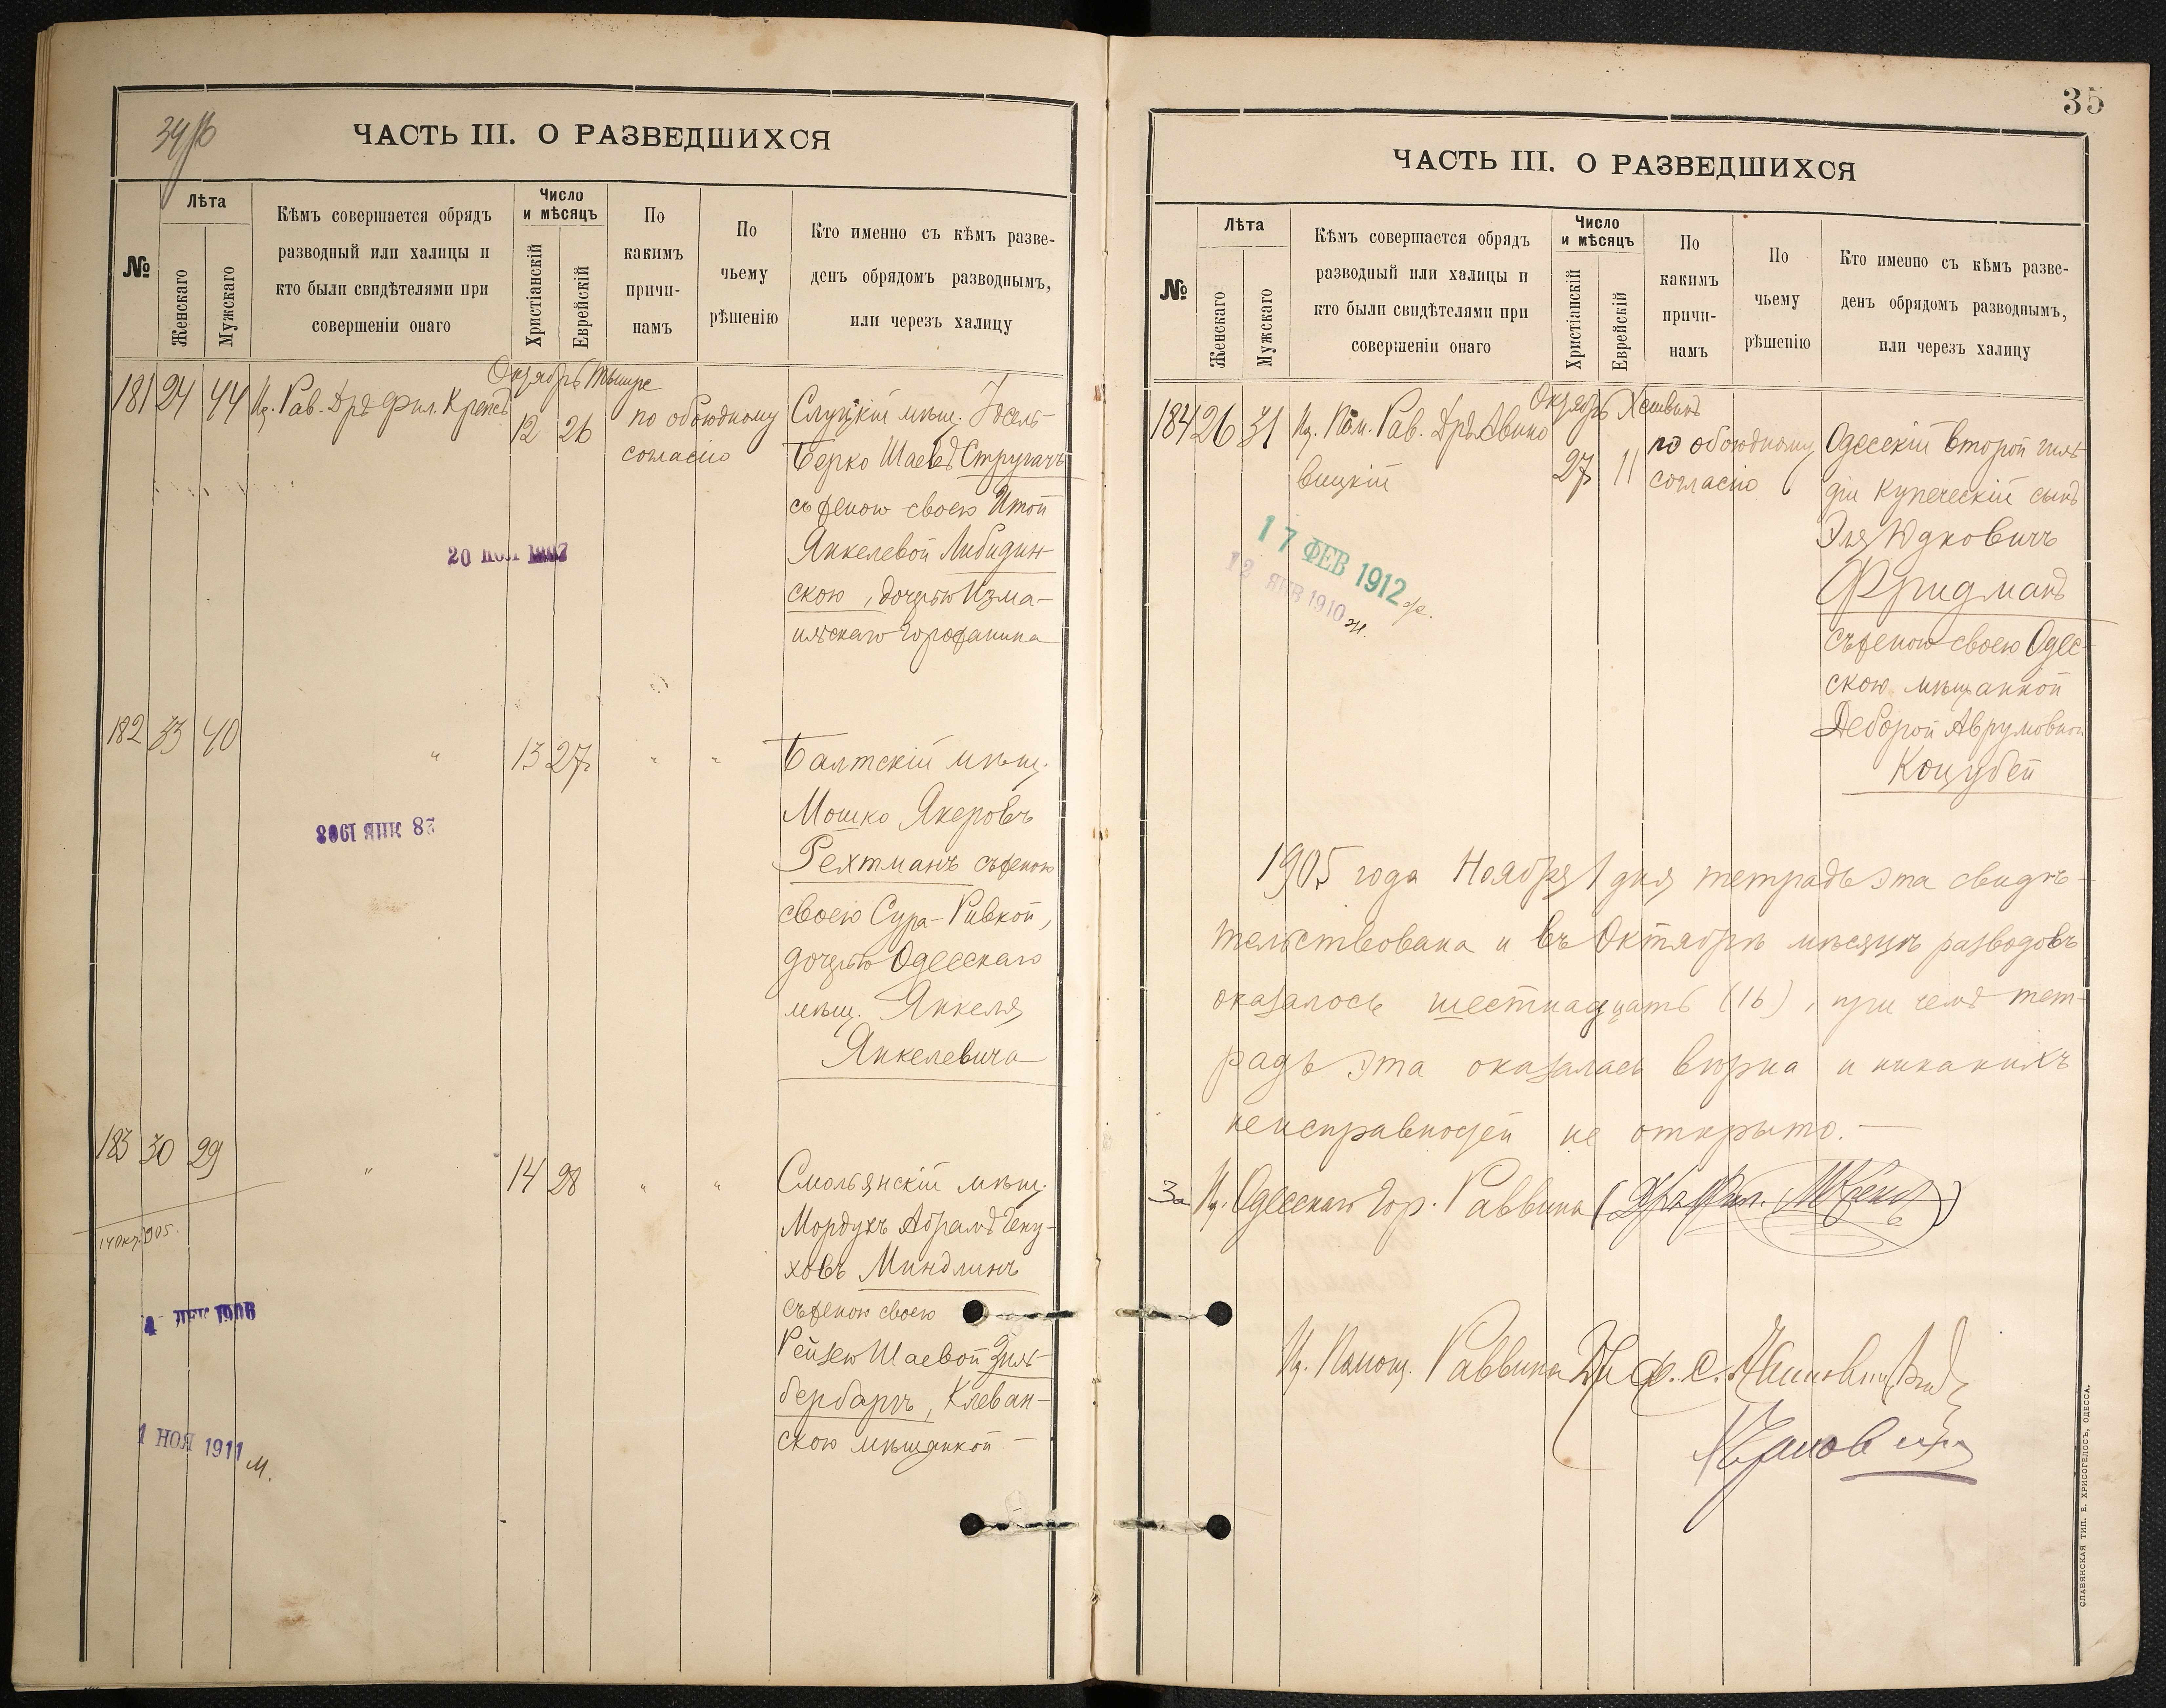 34 об
ЧАСТЬ III. О РАЗВЕДШИХСЯ
№
Лѣта
Женскаго
Мужскаго
Кѣмъ совершается обрядъ
разводный или халицы и
кто были свидѣтелями при
совершеніи онаго
Число
и мѣсяцъ
Христіанскій
Еврейскій
По
какимъ
причи-
намъ
По
чьему
рѣшенію
Кто именно съ кѣмъ разве-
денъ обрядомъ разводнымъ,
или черезъ халицу
Октябрь Тишре
181 24 44 И. Рав. Дръ Фил. Крепсъ
12 26
по обоюдному
согласію
Слуцкій мѣщ. Іосель-
Берко Шаевъ Стругачъ
съ женою своею Итой
Янкелевой Либидин-
скою, дочерью Изма-
ильскаго горожанина
20 НОЯ 1907
182 33 40
" 13 27 " "
Балтскій мѣщ.
Мошко Якеровъ
Рехтманъ съ женою
своею Сура-Ривкой,
дочерью Одесскаго
мѣщ. Янкеля
Янкелевича
28 ЯНВ 1908
183 30 29
" 14 28 " "
Смольянскій мѣщ.
Мордухъ Абрамъ Гену-
ховъ Миндлинъ
съ женою своею
Рейзею Шаевой Зиль-
бербартъ, Клеван-
скою мѣщанкой
14 Окт. 1905.
4 ДЕК 1906
1 НОЯ 1911 м.
35
ЧАСТЬ III. О РАЗВЕДШИХСЯ
№
Лѣта
Женскаго
Мужскаго
Кѣмъ совершается обрядъ
разводный или халицы и
кто были свидѣтелями при
совершеніи онаго
Число
и мѣсяцъ
Христіанскій
Еврейскій
По
какимъ
причи-
намъ
По
чьему
рѣшенію
Кто именно съ кѣмъ разве-
денъ обрядомъ разводнымъ,
или черезъ халицу
Октябрь Хешвинъ
184 26 31 И. Пом. Рав. Дръ Авино
вицкій
27 11
по обоюдному
согласію
Одесскій второй гиль-
діи купеческій сынъ
Эля Юдковичъ
Фридманъ
съ женою своею Одес-
скою мѣщанкой
Деборой Аврумовной
Коцубей
17 ФЕВ 1912 ж.
12 ЯНВ 1910 м.
1905 года Ноября 1 дня тетрадь эта свидѣ-
тельствована и въ Октябрѣ мѣсяцѣ разводовъ
оказалось шестнадцать (16), при чемъ тет-
радь эта оказалась вѣрна и никакихъ
неисправностей не открыто.
За И. Одесскаго Гор. Раввина (Дръ Фил. Крепсъ)
И. Помощ. Раввина Др
СЛАВЯНСКАЯ ТИП. Е. ХРИСОГЕЛОСЪ, ОДЕССА.